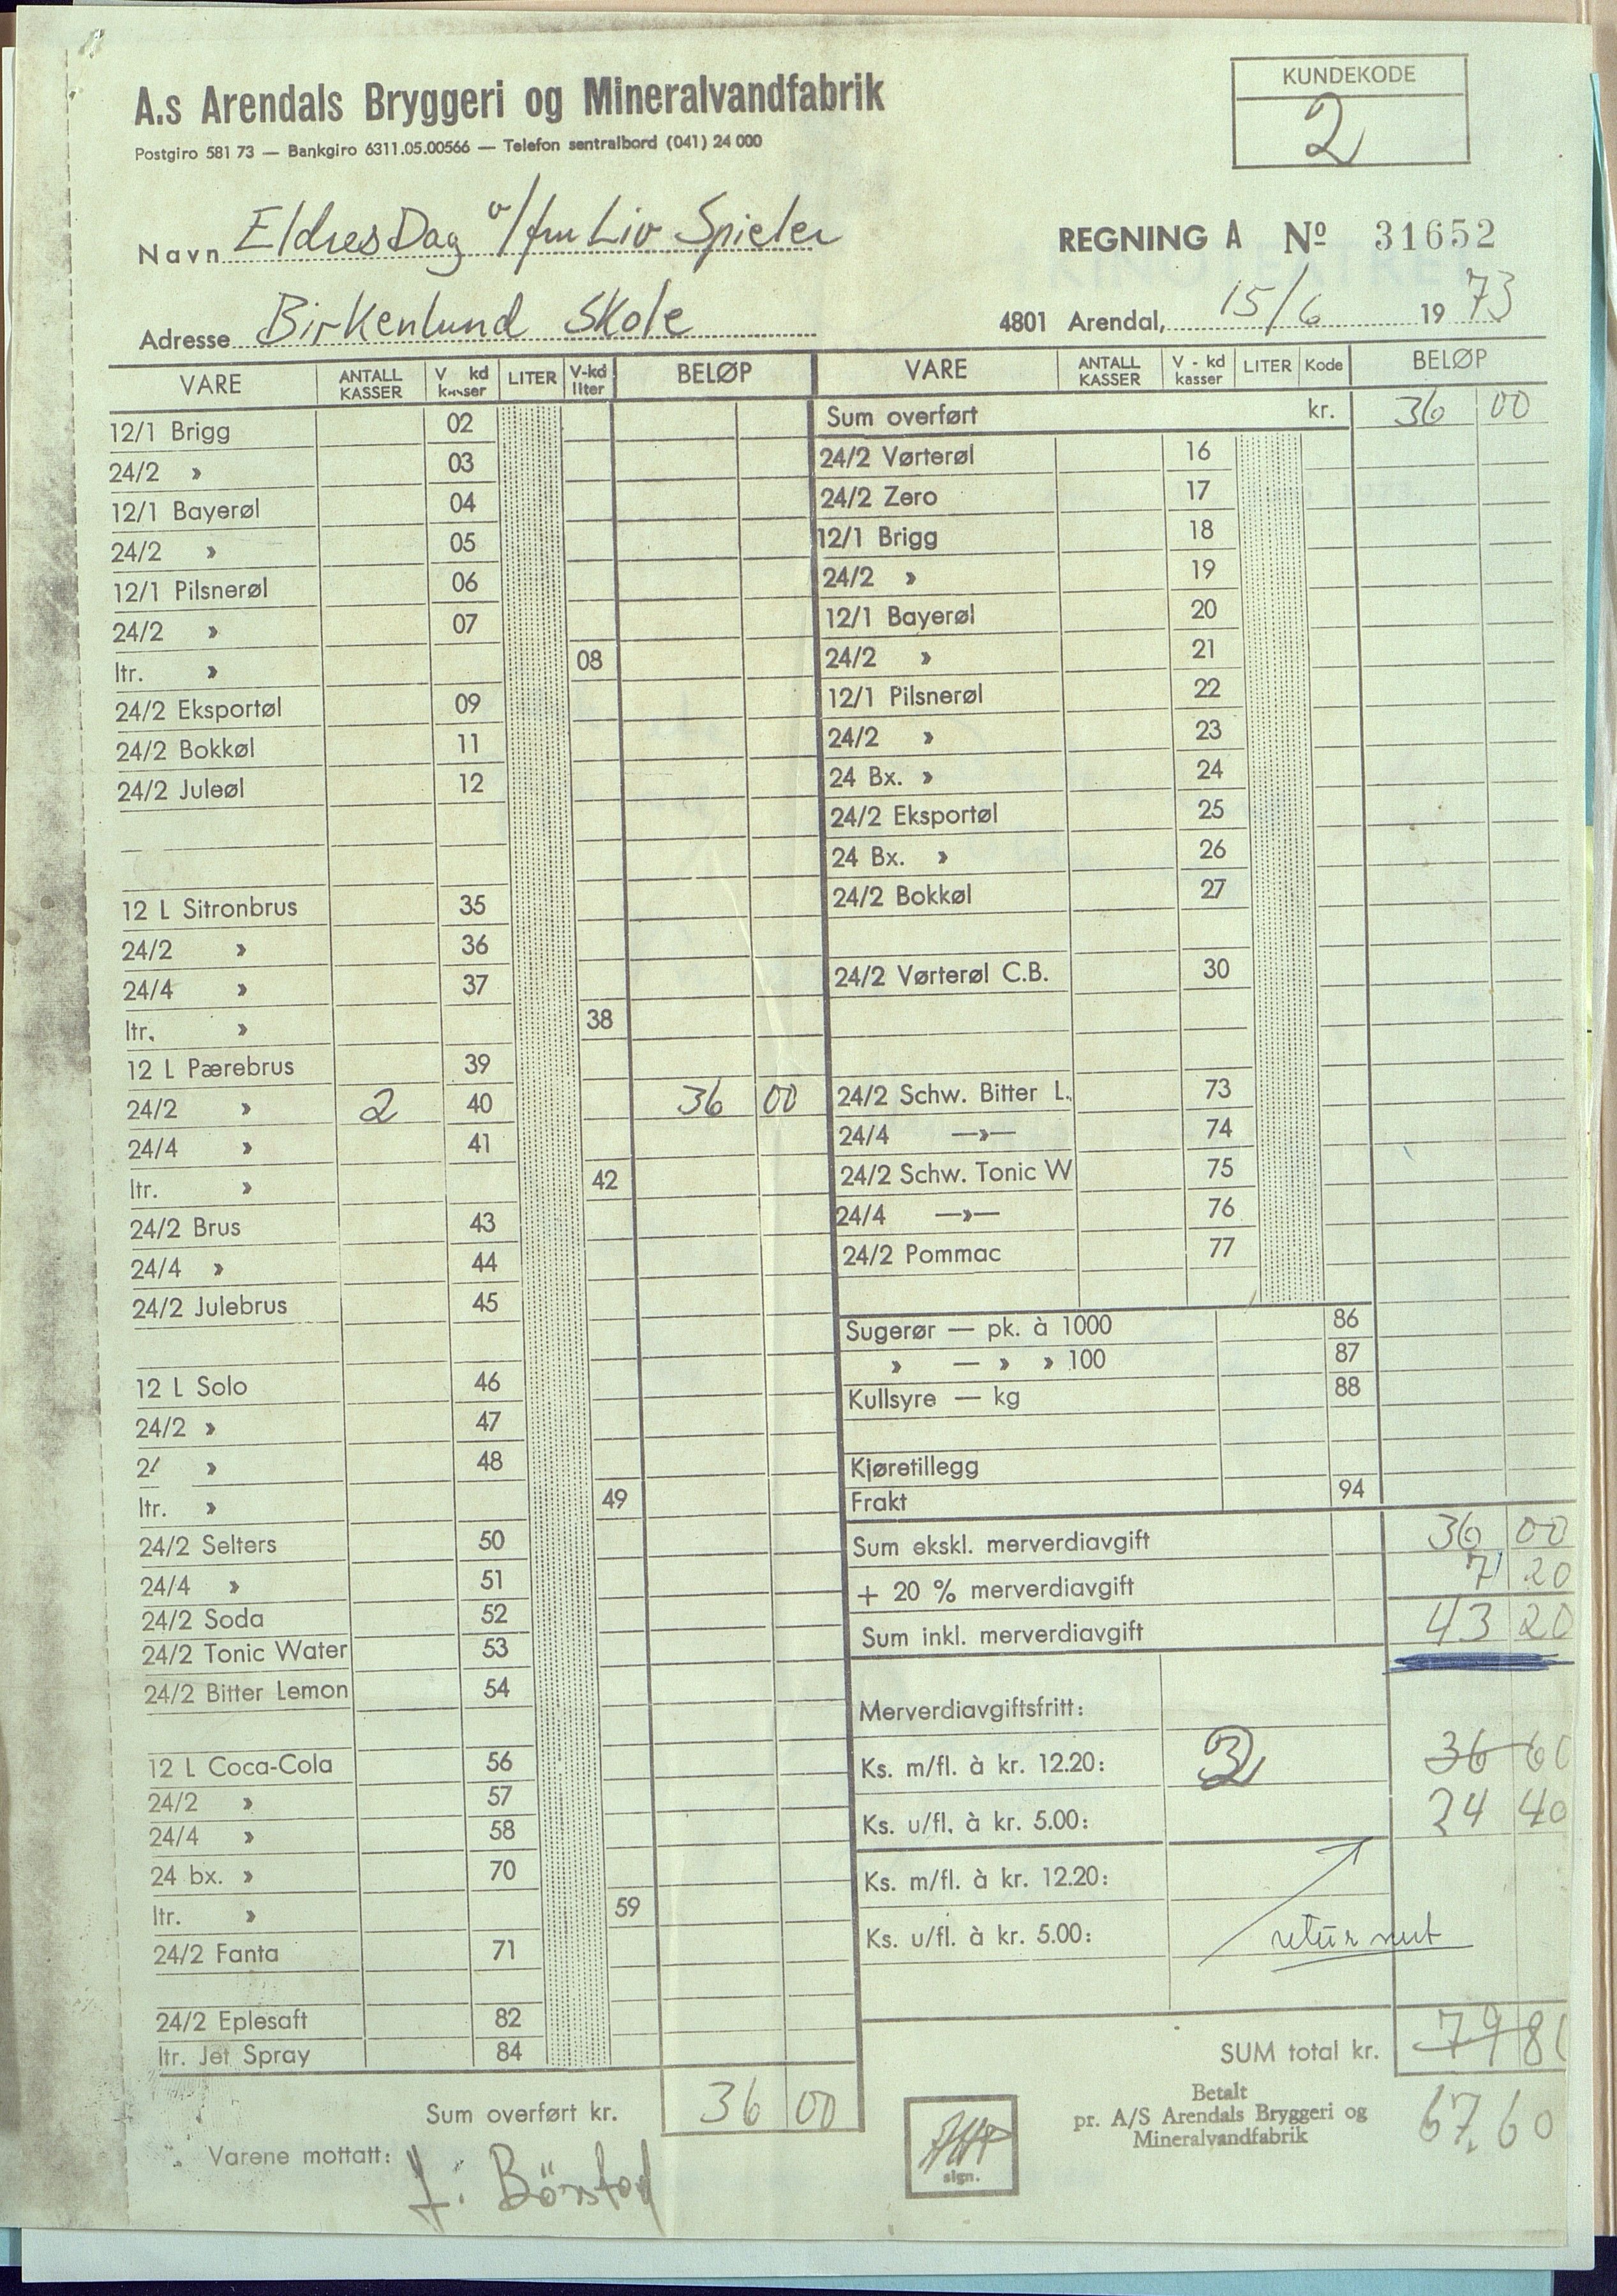 A.s Arendals Bryggeri og Mineralvandfabrik
Postgiro 581 73 — Bankgiro 6311.05.00566 — Telefon sentralbord (041) 24 000
KUNDEKODE
2
Navn Eldres Dag v/fru Liv Spieler
REGNING A Nº 31652
Adresse Birkenlund Skole
4801 Arendal, 15/6 1973
VARE ANTALL KASSER V kd kasser LITER V-kd liter BELØP
12/1 Brigg 02
24/2 » 03
12/1 Bayerøl 04
24/2 » 05
12/1 Pilsnerøl 06
24/2 » 07
ltr. » 08
24/2 Eksportøl 09
24/2 Bokkøl 11
24/2 Juleøl 12
12 L Sitronbrus 35
24/2 » 36
24/4 » 37
ltr. » 38
12 L Pærebrus 39
24/2 » 2 40 36 00
24/4 » 41
ltr. » 42
24/2 Brus 43
24/4 » 44
24/2 Julebrus 45
12 L Solo 46
24/2 » 47
2/ » 48
ltr. » 49
24/2 Selters 50
24/4 » 51
24/2 Soda 52
24/2 Tonic Water 53
24/2 Bitter Lemon 54
12 L Coca-Cola 56
24/2 » 57
24/4 » 58
24 bx. » 70
ltr. » 59
24/2 Fanta 71
24/2 Eplesaft 82
ltr. Jet Spray 84
Sum overført kr. 36 00
Varene mottatt:
VARE ANTALL KASSER V - kd kasser LITER Kode BELØP
Sum overført kr. 36 00
24/2 Vørterøl 16
24/2 Zero 17
12/1 Brigg 18
24/2 » 19
12/1 Bayerøl 20
24/2 » 21
12/1 Pilsnerøl 22
24/2 » 23
24 Bx. » 24
24/2 Eksportøl 25
24 Bx. » 26
24/2 Bokkøl 27
24/2 Vørterøl C.B. 30
24/2 Schw. Bitter L. 73
24/4 —»— 74
24/2 Schw. Tonic W 75
24/4 —»— 76
24/2 Pommac 77
Sugerør — pk. à 1000 86
» — » » 100 87
Kullsyre — kg 88
Kjøretillegg
Frakt 94
Sum ekskl. merverdiavgift 36 00
+ 20 % merverdiavgift 7 20
Sum inkl. merverdiavgift 43 20
Merverdiavgiftsfritt:
Ks. m/fl. à kr. 12.20: 2 36 60
Ks. u/fl. à kr. 5.00: 24 40
Ks. m/fl. à kr. 12.20:
Ks. u/fl. à kr. 5.00: retur
SUM total kr. 79 80
67.60
Betalt
pr. A/S Arendals Bryggeri og
Mineralvandfabrik
sign.